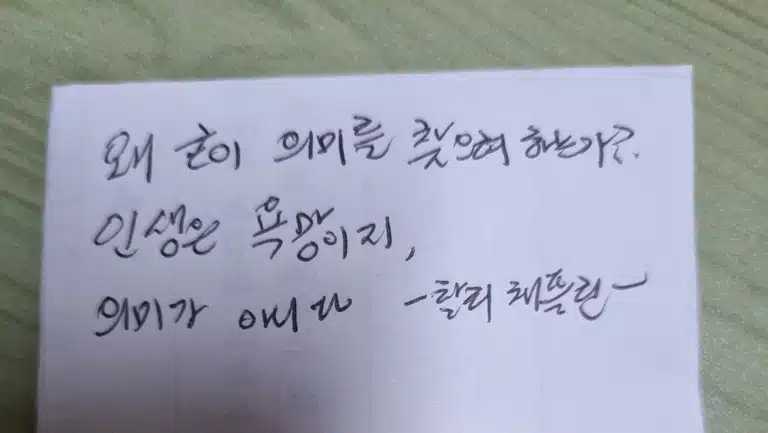 왜 굳이 의미를 찾으려 하는가?.
인생은 욕망이지,
의미가 아니다 -찰리 채플린-